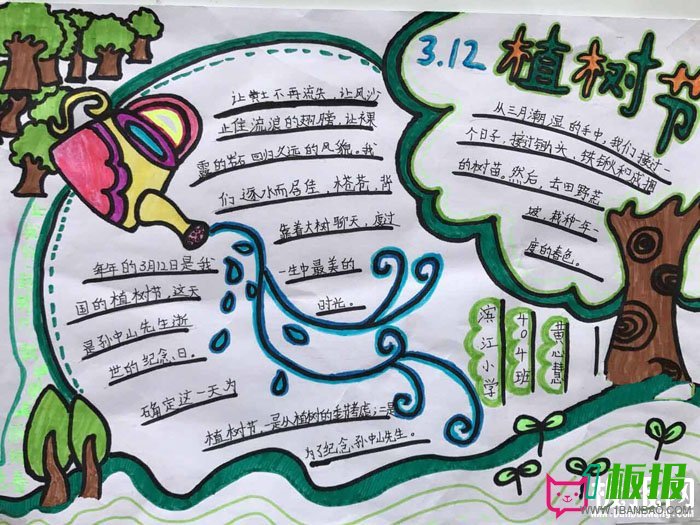 3.12 植树节
从三月潮湿的手中,我们接过一
个日子,接过锄头,铁锹和成捆
的树苗。然后,去田野荒
坡,栽种年一
度的春色。
让黄土不再流失,让风沙
止住流浪的翅膀,让裸
露的岩石回归久远的风貌。我
们逐水而居住,搭苍,背
靠着大树聊天,度过
一生中最美的
时光。
每年的3月12日是我
国的植树节,这天
是孙中山先生逝
世的纪念日。
确定这一天为
植树节,一是从植树的考虑;二是
为了纪念孙中山先生。
滨江小学
404班
黄心慧
板报
WWW.1BANBAO.COM